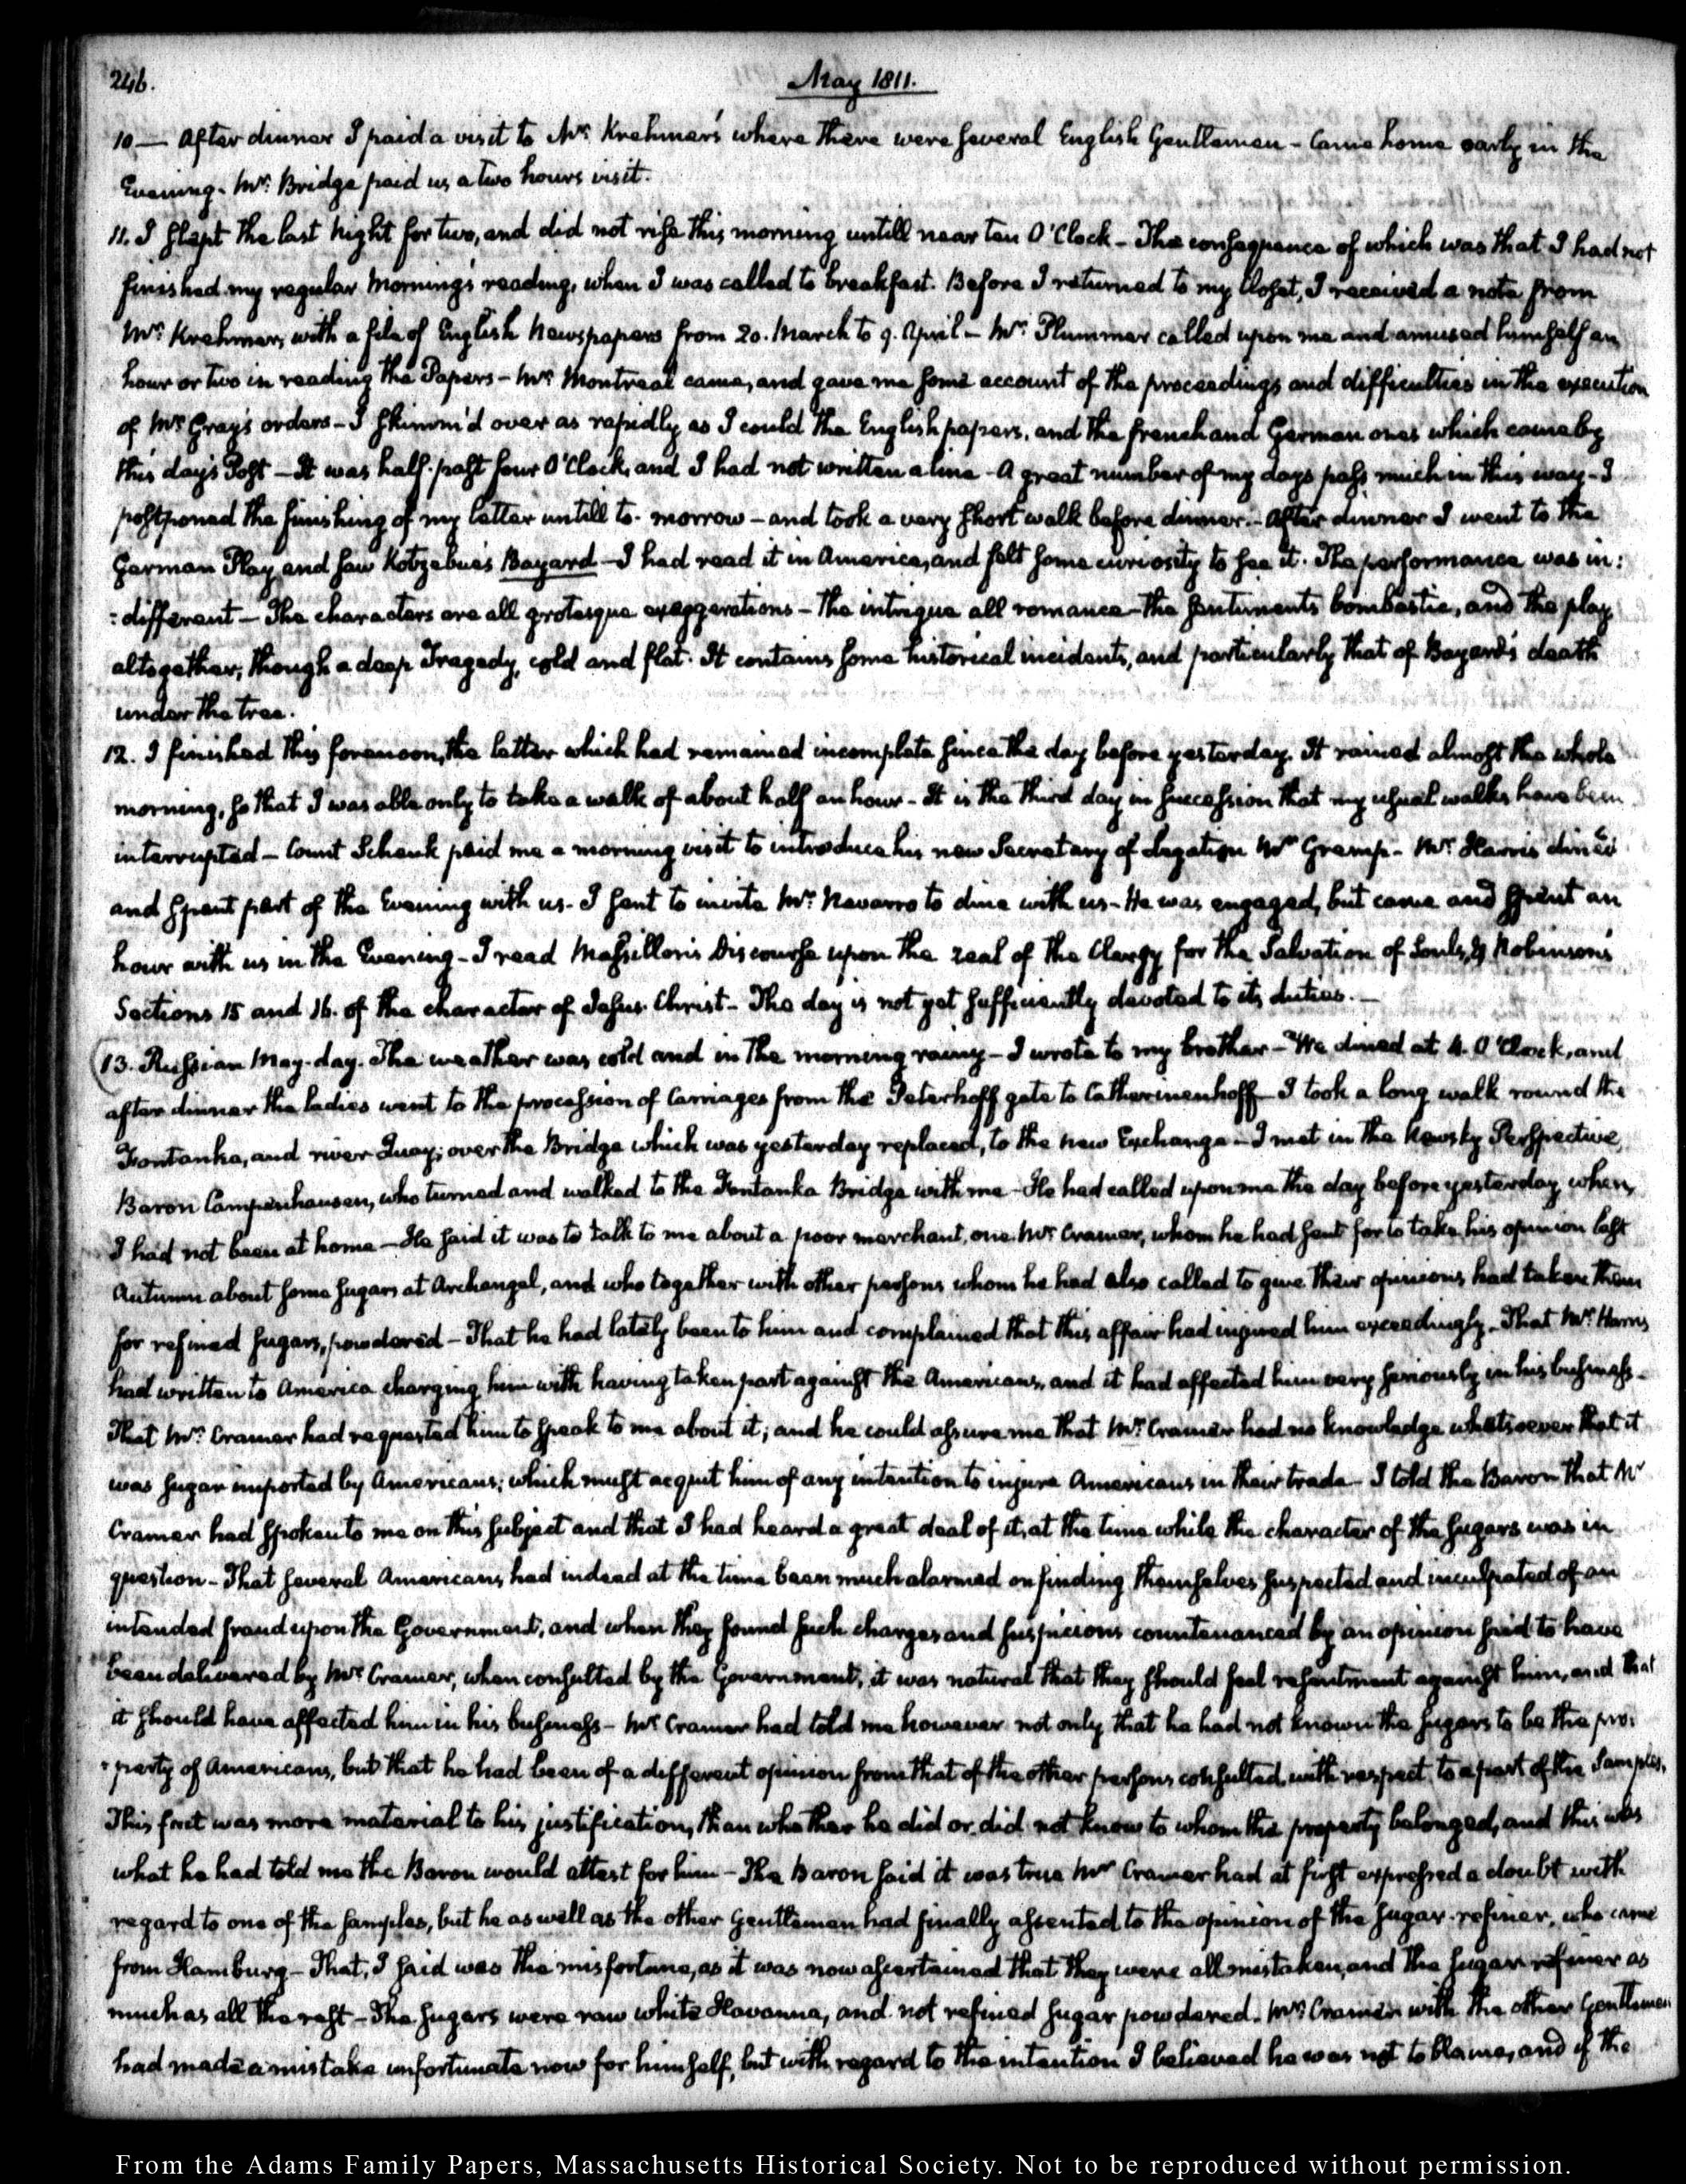 246.
May 1811.
10 — After dinner I paid a visit to Mr. Krehmer's where there were several English Gentlemen - Came home early in the
Evening. Mr. Bridge paid us a two hours visit.
11. I slept the last night for two, and did not rise this morning untill near ten O'Clock - The consequence of which was that I had not
finished my regular morning's reading, when I was called to breakfast. Before I returned to my closet, I received a note from
Mr. Krehmer, with a file of English Newspapers from 20. March to 9. April - Mr. Plummer called upon me and amused himself an
hour or two in reading the Papers - Mr. Montreal came, and gave me some account of the proceedings and difficulties in the execution
of Mr. Gray's orders - I skimm'd over as rapidly as I could the English papers, and the french and German ones which came by
this day's Post - It was half-past four O'Clock, and I had not written a line - A great number of my days pass much in this way - I
postponed the finishing of my letter untill to-morrow - and took a very short walk before dinner. - After dinner I went to the
German Play and saw Kotzebue's Bayard - I had read it in America, and felt some curiosity to see it. The performance was in:
:different - The characters are all grotesque exaggerations - the intrigue all romance - the sentiments bombastic, and the play
altogether, though a deep Tragedy, cold and flat. It contains some historical incidents, and particularly that of Bayard's death
under the tree.
12. I finished this forenoon, the letter which had remained incomplete since the day before yesterday. It rained almost the whole
morning, so that I was able only to take a walk of about half an hour - It is the third day in succession that my usual walks have been
interrupted - Count Schenk paid me a morning visit to introduce his new Secretary of Legation Mr. Gremp - Mr. Harris dined
and spent part of the Evening with us - I sent to invite Mr. Navarro to dine with us - He was engaged, but came and spent an
hour with us in the Evening - I read Massillon's Discourse upon the zeal of the Clergy for the Salvation of Souls, & Robinson's
Sections 15 and 16. of the character of Jesus Christ - The day is not yet sufficiently devoted to its duties. —
13. Russian May-day. The weather was cold and in the morning rainy - I wrote to my brother - We dined at 4. O'Clock, and
after dinner the ladies went to the procession of Carriages from the Peterhoff gate to Catherinenhoff - I took a long walk round the
Fontanka, and river Quay; over the Bridge which was yesterday replaced, to the new Exchange - I met in the Newsky Perspective
Baron Campenhausen, who turned and walked to the Fontanka Bridge with me - He had called upon me the day before yesterday when
I had not been at home - He said it was to talk to me about a poor merchant, one Mr. Cramer, whom he had sent for to take his opinion last
Autumn about some sugars at Archangel, and who together with other persons whom he had also called to give their opinions, had taken them
for refined sugars, powdered - That he had lately been to him and complained that this affair had injured him exceedingly. That Mr. Harris
had written to America charging him with having taken part against the Americans, and it had affected him very seriously in his business -
That Mr. Cramer had requested him to speak to me about it; and he could assure me that Mr. Cramer had no knowledge whatsoever that it
was sugar imported by Americans; which must acquit him of any intention to injure Americans in their trade - I told the Baron that Mr.
Cramer had spoken to me on this subject and that I had heard a great deal of it, at the time while the character of the sugars was in
question - That several Americans had indeed at the time been much alarmed on finding themselves suspected and inculpated of an
intended fraud upon the Government, and when they found such charges and suspicions countenanced by an opinion said to have
been delivered by Mr. Cramer, when consulted by the Government, it was natural that they should feel resentment against him, and that
it should have affected him in his business - Mr. Cramer had told me however not only that he had not known the sugars to be the pro:
:perty of Americans, but that he had been of a different opinion from that of the other persons consulted, with respect to a part of the Samples.
This fact was more material to his justification, than whether he did or did not know to whom the property belonged, and this was
what he had told me the Baron would attest for him - The Baron said it was true Mr. Cramer had at first expressed a doubt with
regard to one of the samples, but he as well as the other Gentlemen had finally assented to the opinion of the sugar-refiner, who came
from Hamburg - That, I said was the misfortune, as it was now ascertained that they were all mistaken, and the sugar refiner as
much as all the rest - The sugars were raw white Havanna, and not refined sugar powdered. Mr. Cramer with the other Gentlemen
had made a mistake unfortunate now for himself, but with regard to the intention I believed he was not to blame, and if the
From the Adams Family Papers, Massachusetts Historical Society. Not to be reproduced without permission.